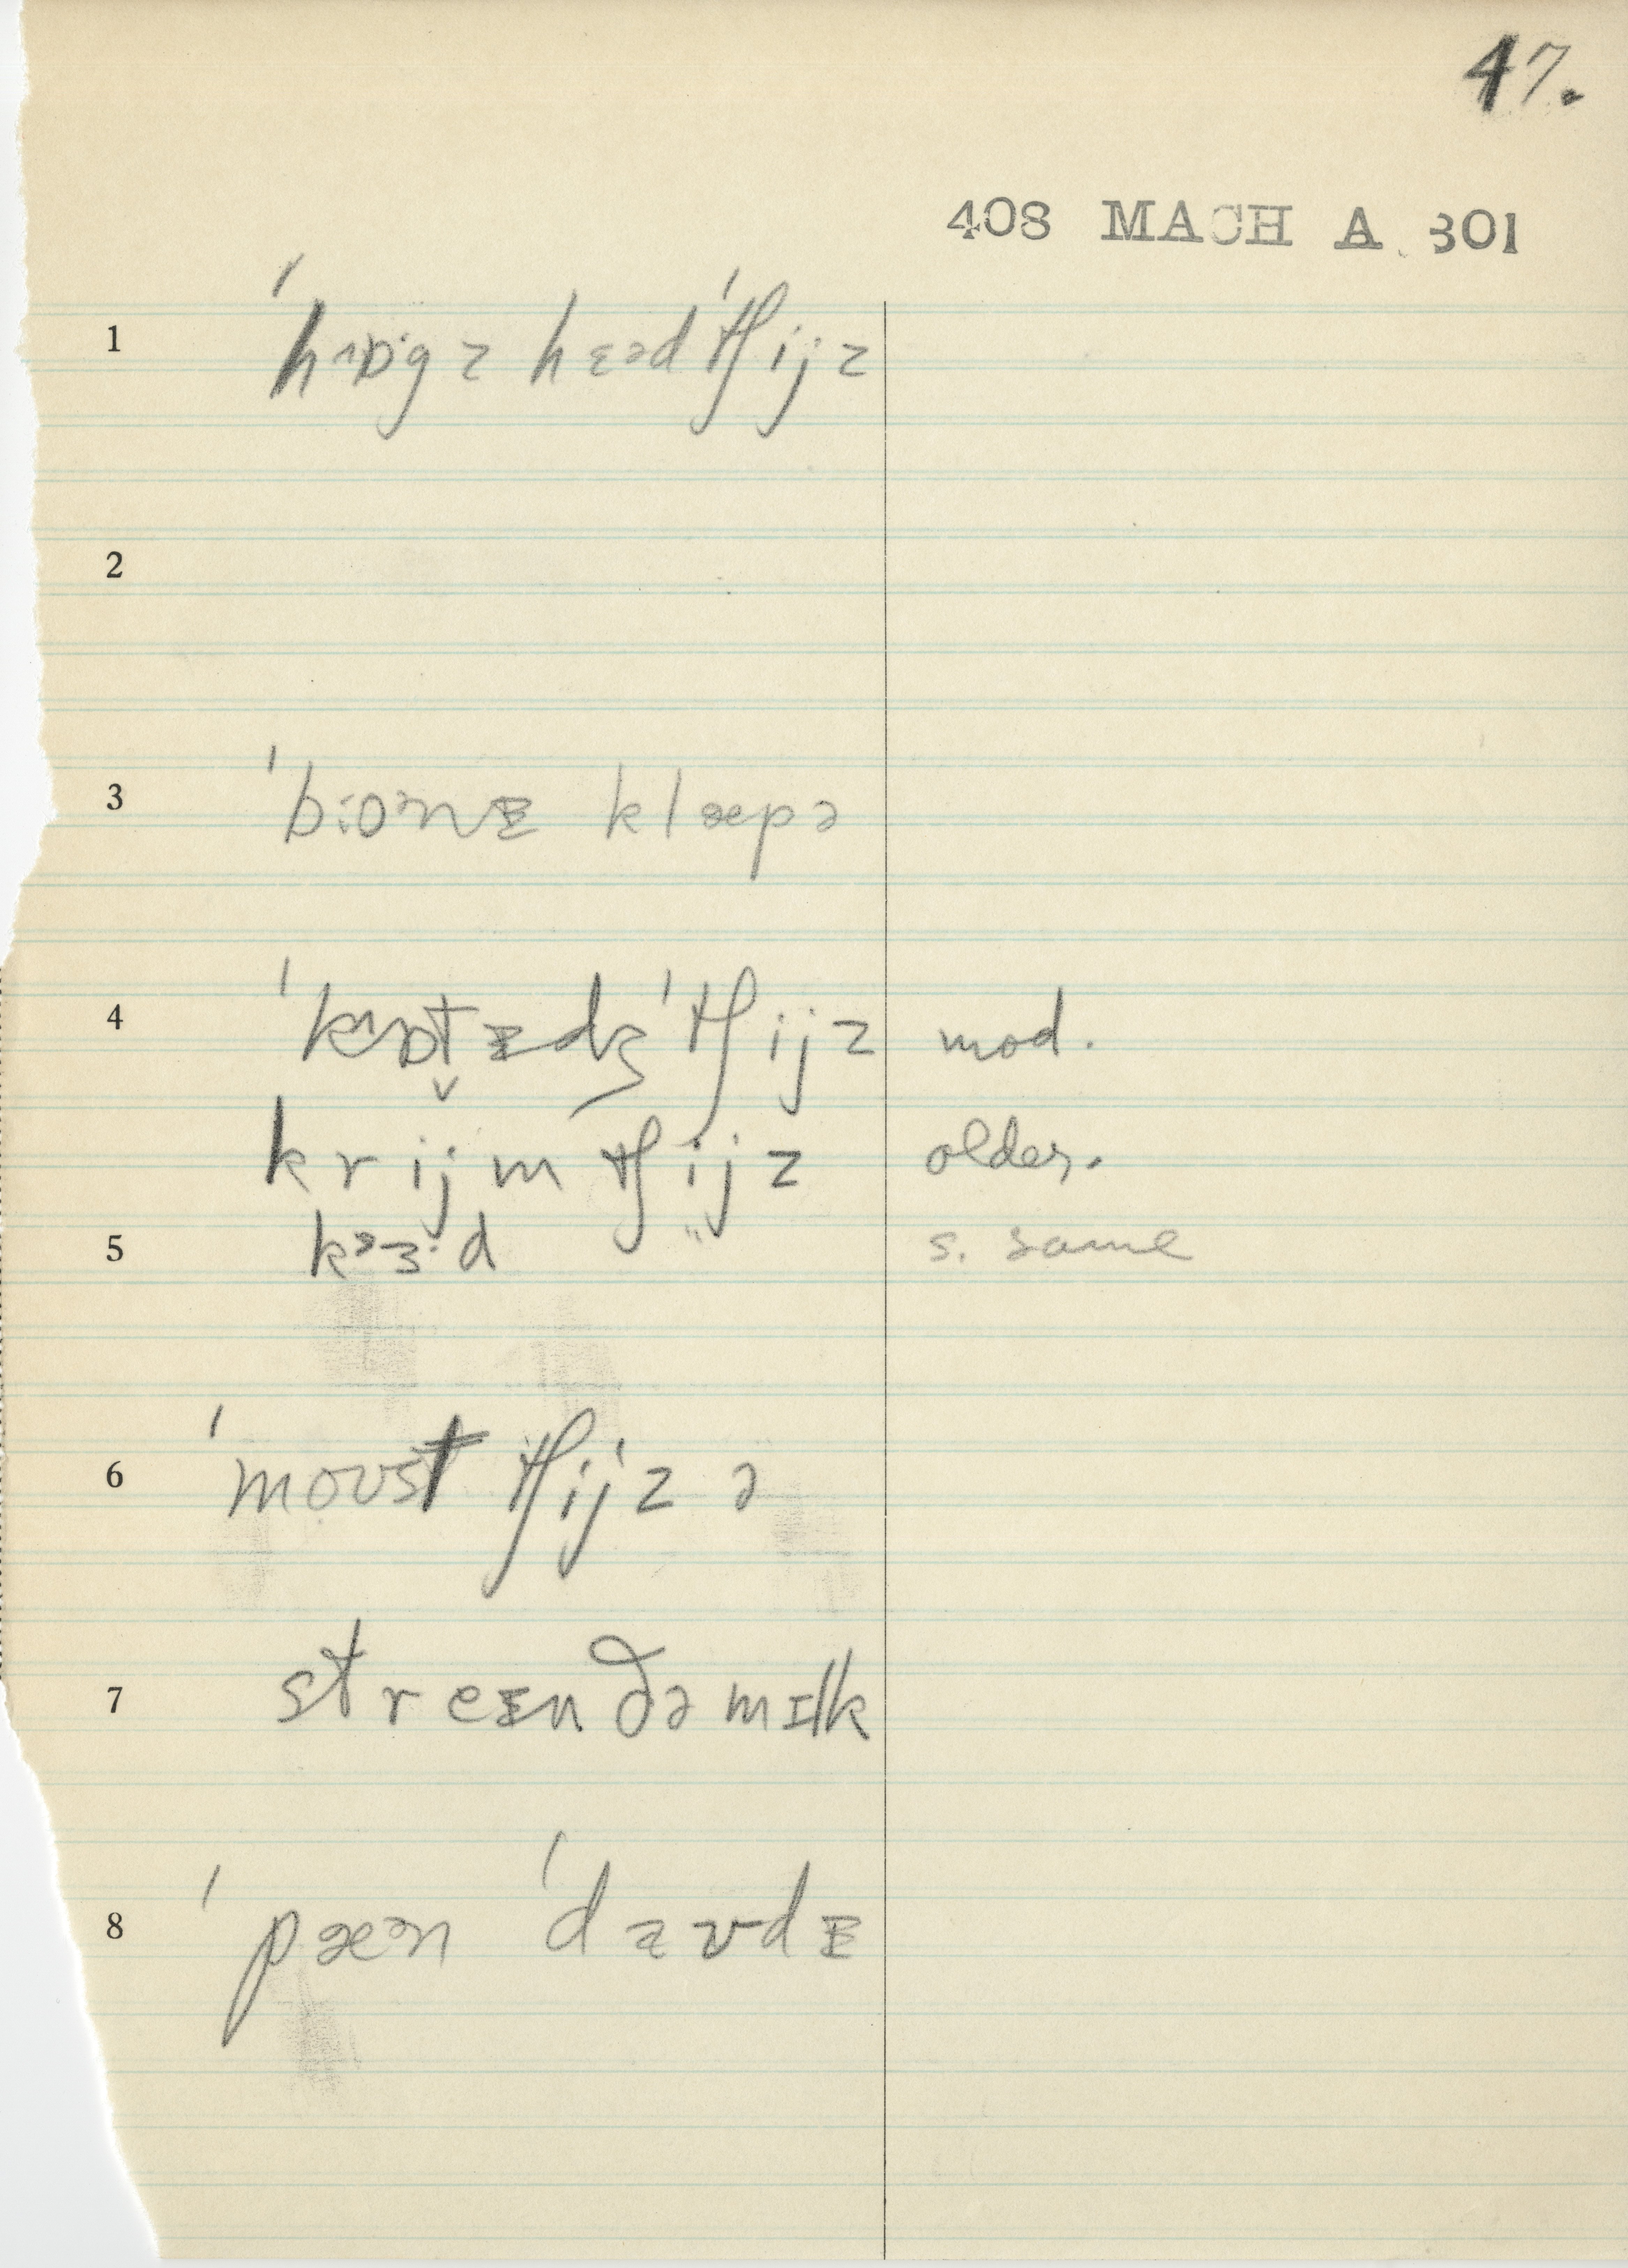 47.
408 MACH A 301
1 ˈhɒigz hɛəd ˈtʃijz
2
3 ˈbɪɔnᵻ klæpə
4 ˈkɒt̬ᵻdʒ ˈtʃijz mod.
krijm tʃijz older.
5 kᵊɜ·d s. same
6 ˈmoust tʃijz ə
7 streᵻn ðə mɪlk
8 ˈpæᵊn ˈdaʊdᵻ